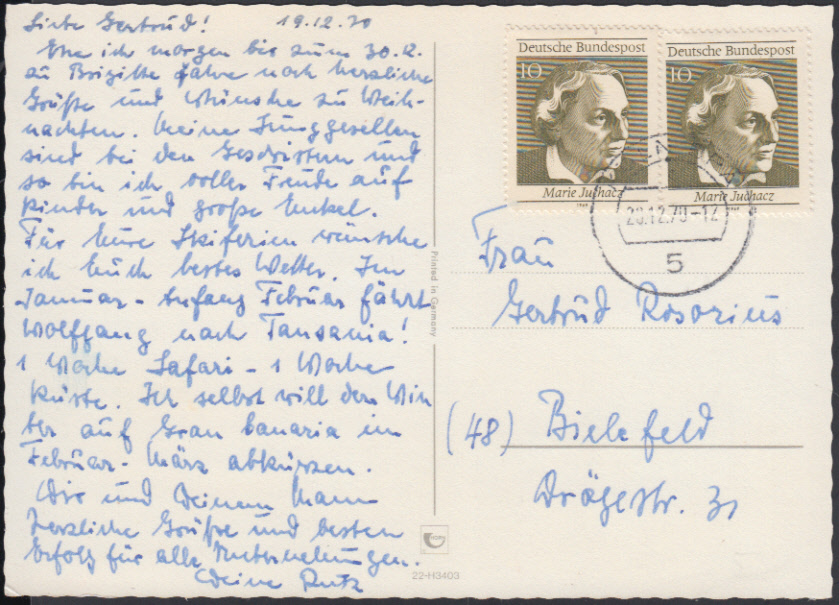 Liebe Gertrud! 19.12.70
Ehe ich morgen bis zum 30.12.
zu Brigitte fahre noch herzliche
Grüße und Wünsche zu Weih-
nachten. Meine Junggesellen
sind bei den Geschwistern und
so bin ich voller Freude auf
Kinder und große Enkel.
Für Eure Skiferien wünsche
ich Euch bestes Wetter. Im
Januar - Anfang Februar fährt
Wolfgang nach Tansania!
1 Woche Safari - 1 Woche
Küste. Ich selbst will den Win
ter auf Gran Canaria im
Februar - März abkürzen.
Dir und Deinem Mann
herzliche Grüße und besten
Erfolg für alle Unternehungen.
Deine
Printed in Germany
22-H3403
Deutsche Bundespost
10
Marie Juchacz
1969
Deutsche Bundespost
10
Marie Juchacz
1969
20.12.70-12
5
Frau
Gertrud Rosorius
(48) Bielefeld
Drögestr. 31